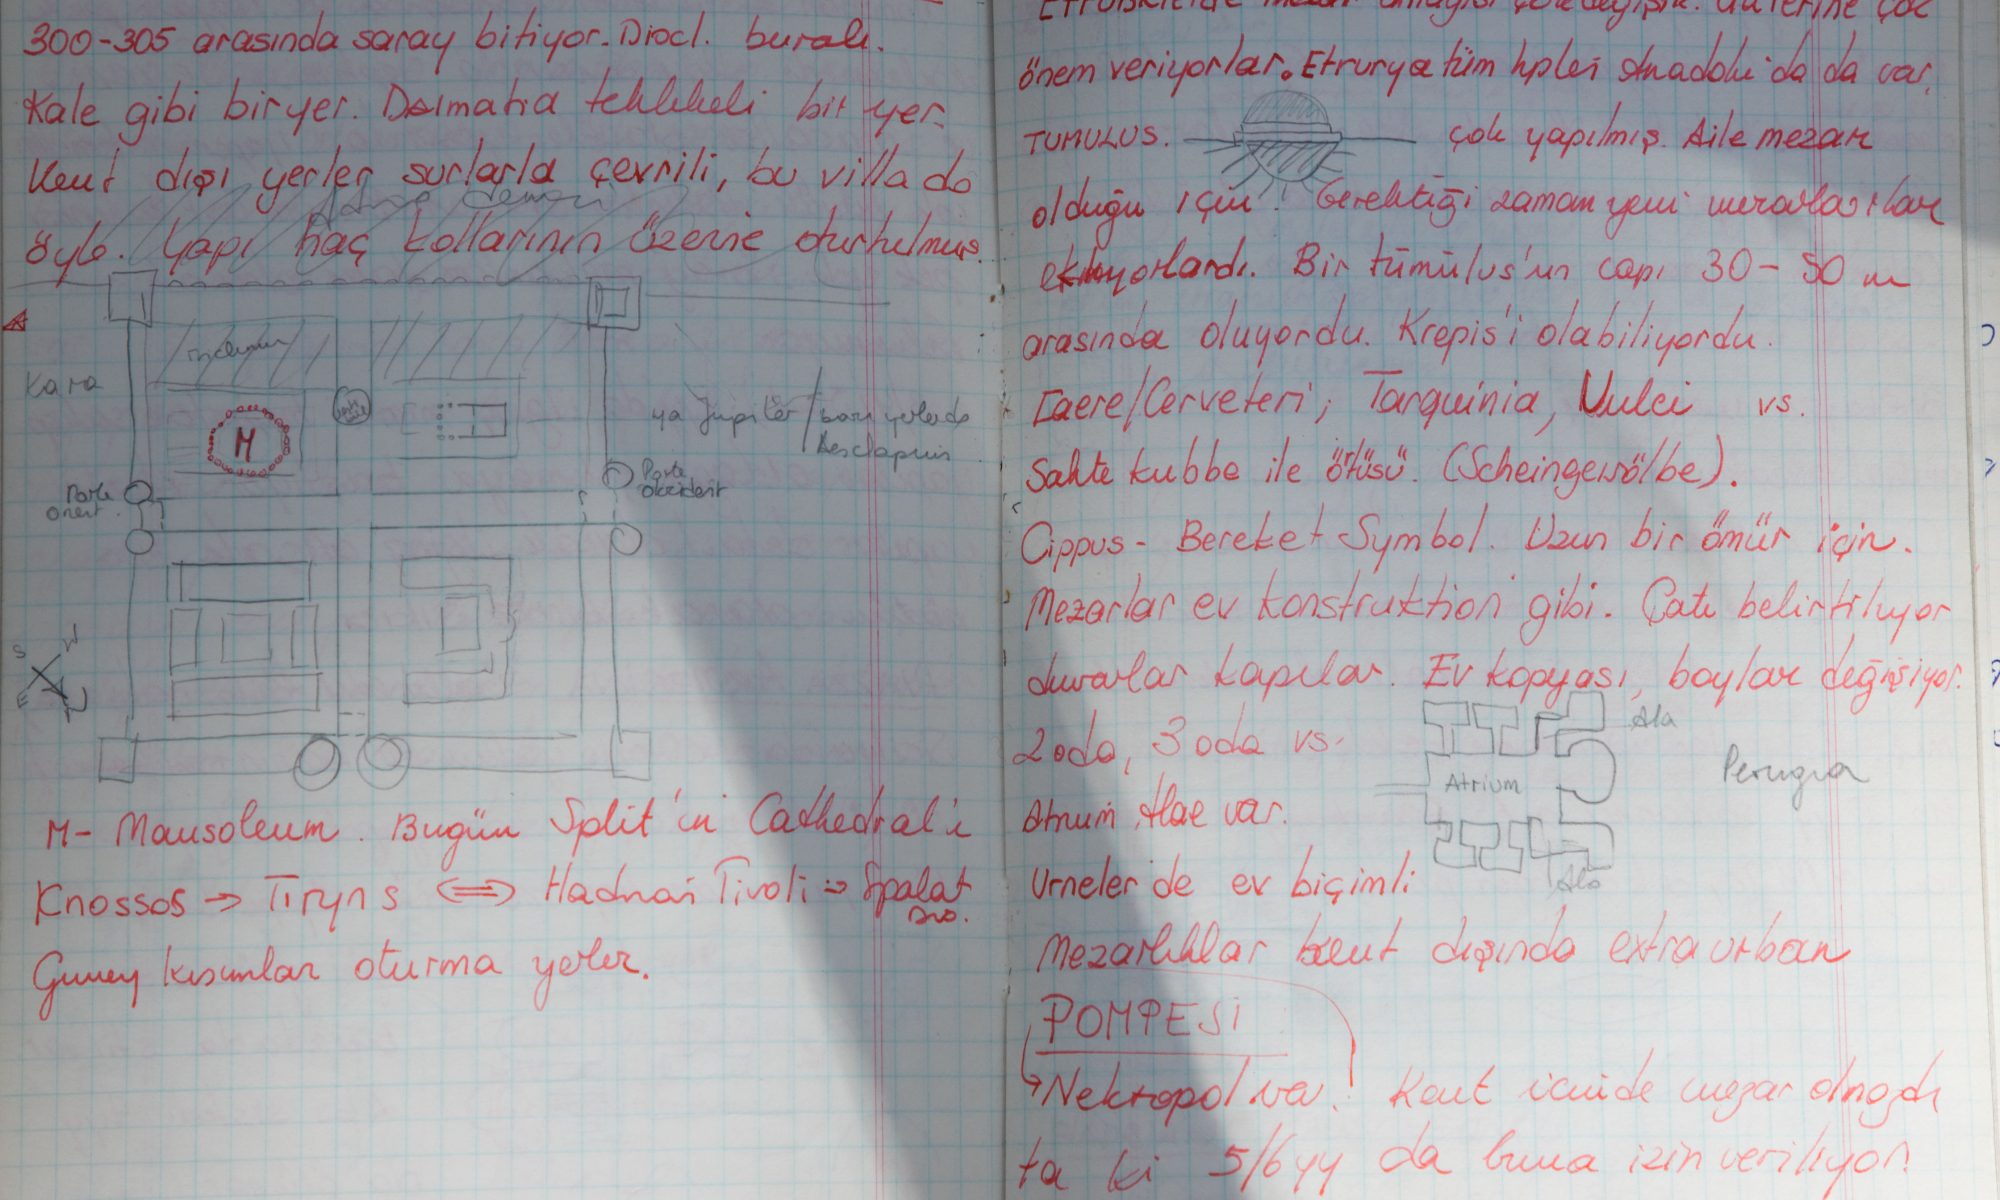 300-305 arasında saray bitiyor. Diocl. buralı.
Kale gibi bir yer. Dalmatia tehlikeli bir yer.
Kent dışı yerler surlarla çevrili, bu villa da
öyle. Yapı haç kollarının üzerine oturtulmuş.
Kara
M
ya Jupiter / bazı yerlerde
Aesclapius
Porta
orient.
Porta
occident
S W
E N
M- Mausoleum. Bugün Split'in Cathedral'i
Knossos → Tiryns ⟺ Hadrian Tivoli → Spalat
Güney kısımlar oturma yerler.
önem veriyorlar. Etrurya tüm tipleri Anadolu'da da var.
TUMULUS. çok yapılmış. Aile mezarı
olduğu için. Gerektiği zaman yeni mezarlar
ekliyorlardı. Bir tümülüs'ün çapı 30-50 m
arasında oluyordu. Krepis'i olabiliyordu.
Caere/Cerveteri; Tarquinia, Vulci vs.
Sahte kubbe ile örtüsü. (Scheingewölbe).
Cippus - Bereket-Symbol. Uzun bir ömür için.
Mezarlar ev konstruktion gibi. Çatı belirtiliyor
duvarlar kapılar. Ev kopyası, boylar değişiyor.
2 oda, 3 oda vs.
Ala
Atrium
Perugia
Atrium, Alae var.
Ala
Urneler de ev biçimli
Mezarlıklar kent dışında extra urban
POMPESİ
→ Nekropol var. Kent içinde mezar olmazdı
ta ki 5/6 yy da buna izin veriliyor.